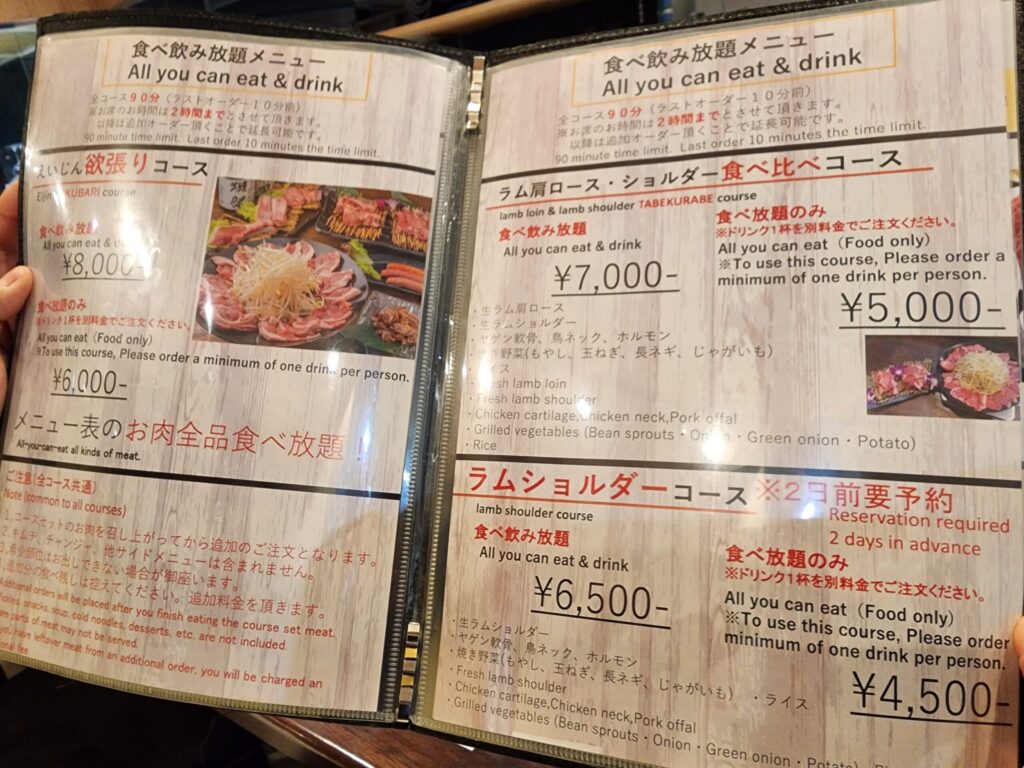 食べ飲み放題メニュー
All you can eat & drink
全コース90分（ラストオーダー10分前）
※お席のお時間は2時間までとさせて頂きます。
以降は追加オーダー頂くことで延長可能です。
90 minute time limit. Last order 10 minutes the time limit.
えいじん欲張りコース
Eijin KUBARI course
食べ飲み放題
All you can eat & drink
¥8,000-
食べ放題のみ
※ドリンク1杯を別料金でご注文ください。
All you can eat (Food only)
※To use this course, Please order a minimum of one drink per person.
¥6,000-
メニュー表のお肉全品食べ放題！
All-you-can-eat all kinds of meat.
ご注意(全コース共通)
Note (common to all courses)
1.コースセットのお肉を召し上がってから追加のご注文となります。
2.キムチ、チャンジャ、他サイドメニューは含まれません。
3.希少部位はお出しできない場合が御座います。
追加分の食べ残しは控えてください。追加料金を頂きます。
Additional orders will be placed after you finish eating the course set meat.
snacks, soup, cold noodles, desserts, etc. are not included.
parts of meat may not be served.
you have leftover meat from an additional order, you will be charged an
fee.
食べ飲み放題メニュー
All you can eat & drink
全コース90分（ラストオーダー10分前）
※お席のお時間は2時間までとさせて頂きます。
以降は追加オーダー頂くことで延長可能です。
90 minute time limit. Last order 10 minutes the time limit.
ラム肩ロース・ショルダー食べ比べコース
lamb loin & lamb shoulder TABEKURABE course
食べ飲み放題
All you can eat & drink
¥7,000-
食べ放題のみ
※ドリンク1杯を別料金でご注文ください。
All you can eat (Food only)
※To use this course, Please order a
minimum of one drink per person.
¥5,000-
・生ラム肩ロース
・生ラムショルダー
・ヤゲン軟骨、鳥ネック、ホルモン
・焼き野菜(もやし、玉ねぎ、長ネギ、じゃがいも)
・ライス
・Fresh lamb loin
・Fresh lamb shoulder
・Chicken cartilage,Chicken neck,Pork offal
・Grilled vegetables (Bean sprouts・Onion・Green onion・Potato)
・Rice
ラムショルダーコース ※2日前要予約
lamb shoulder course
Reservation required
2 days in advance
食べ飲み放題
All you can eat & drink
¥6,500-
食べ放題のみ
※ドリンク1杯を別料金でご注文ください。
All you can eat (Food only)
※To use this course, Please order
minimum of one drink per person.
¥4,500-
・生ラムショルダー
・ヤゲン軟骨、鳥ネック、ホルモン
・焼き野菜(もやし、玉ねぎ、長ネギ、じゃがいも) ・ライス
・Fresh lamb shoulder
・Chicken cartilage,Chicken neck,Pork offal
・Grilled vegetables (Bean sprouts・Onion・Green onion・Potato)